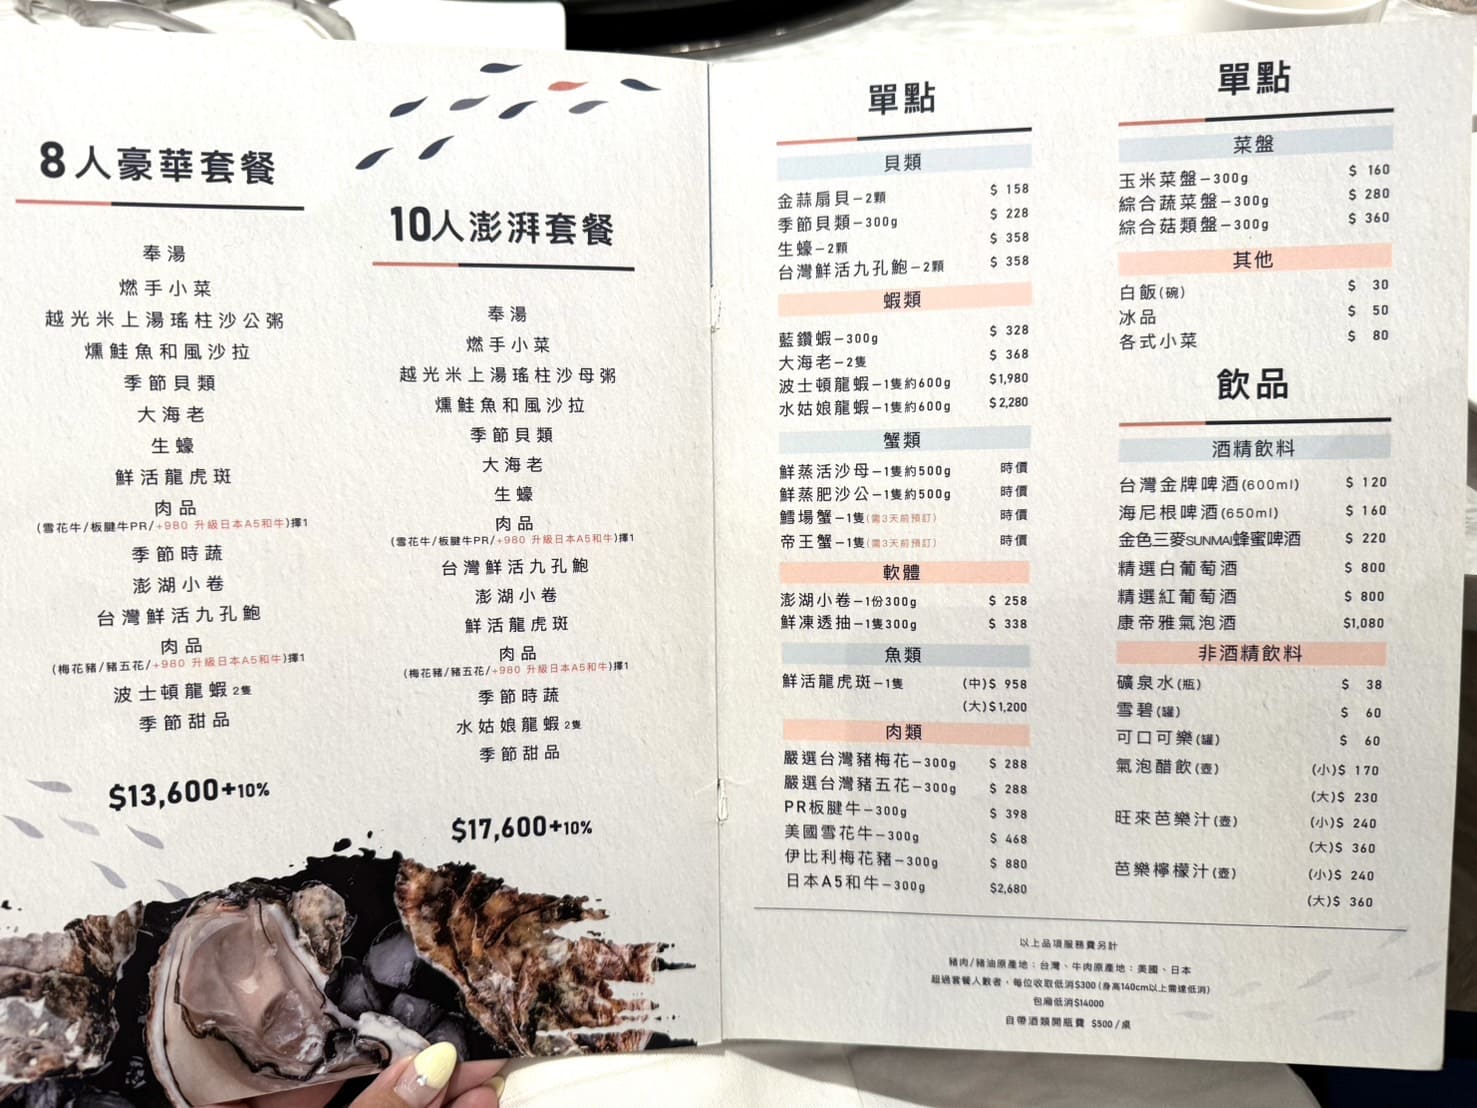 8人豪華套餐
奉湯
燃手小菜
越光米上湯瑤柱沙公粥
燻鮭魚和風沙拉
季節貝類
大海老
生蠔
鮮活龍虎斑
肉品
(雪花牛/板腱牛PR/+980 升級日本A5和牛)擇1
季節時蔬
澎湖小卷
台灣鮮活九孔鮑
肉品
(梅花豬/豬五花/+980 升級日本A5和牛)擇1
波士頓龍蝦2隻
季節甜品
$13,600+10%
10人澎湃套餐
奉湯
燃手小菜
越光米上湯瑤柱沙母粥
燻鮭魚和風沙拉
季節貝類
大海老
生蠔
肉品
(雪花牛/板腱牛PR/+980 升級日本A5和牛)擇1
台灣鮮活九孔鮑
澎湖小卷
鮮活龍虎斑
肉品
(梅花豬/豬五花/+980 升級日本A5和牛)擇1
季節時蔬
水姑娘龍蝦2隻
季節甜品
$17,600+10%
單點
貝類
金蒜扇貝-2顆 $ 158
季節貝類-300g $ 228
生蠔-2顆 $ 358
台灣鮮活九孔鮑-2顆 $ 358
蝦類
藍鑽蝦-300g $ 328
大海老-2隻 $ 368
波士頓龍蝦-1隻約600g $1,980
水姑娘龍蝦-1隻約600g $2,280
蟹類
鮮蒸活沙母-1隻約500g 時價
鮮蒸肥沙公-1隻約500g 時價
鱈場蟹-1隻(需3天前預訂) 時價
帝王蟹-1隻(需3天前預訂) 時價
軟體
澎湖小卷-1份300g $ 258
鮮凍透抽-1隻300g $ 338
魚類
鮮活龍虎斑-1隻 (中)$ 958
(大)$1,200
肉類
嚴選台灣豬梅花-300g $ 288
嚴選台灣豬五花-300g $ 288
PR板腱牛-300g $ 398
美國雪花牛-300g $ 468
伊比利梅花豬-300g $ 880
日本A5和牛-300g $2,680
單點
菜盤
玉米菜盤-300g $ 160
綜合蔬菜盤-300g $ 280
綜合菇類盤-300g $ 360
其他
白飯(碗) $ 30
冰品 $ 50
各式小菜 $ 80
飲品
酒精飲料
台灣金牌啤酒(600ml) $ 120
海尼根啤酒(650ml) $ 160
金色三麥SUNMAI蜂蜜啤酒 $ 220
精選白葡萄酒 $ 800
精選紅葡萄酒 $ 800
康帝雅氣泡酒 $1,080
非酒精飲料
礦泉水(瓶) $ 38
雪碧(罐) $ 60
可口可樂(罐) $ 60
氣泡醋飲(壺) (小)$ 170
(大)$ 230
旺來芭樂汁(壺) (小)$ 240
(大)$ 360
芭樂檸檬汁(壺) (小)$ 240
(大)$ 360
以上品項服務費另計
豬肉/豬油原產地：台灣、牛肉原產地：美國、日本
超過套餐人數者，每位收取低消$300(身高140cm以上需達低消)
包廂低消$14000
自帶酒類開瓶費 $500/桌